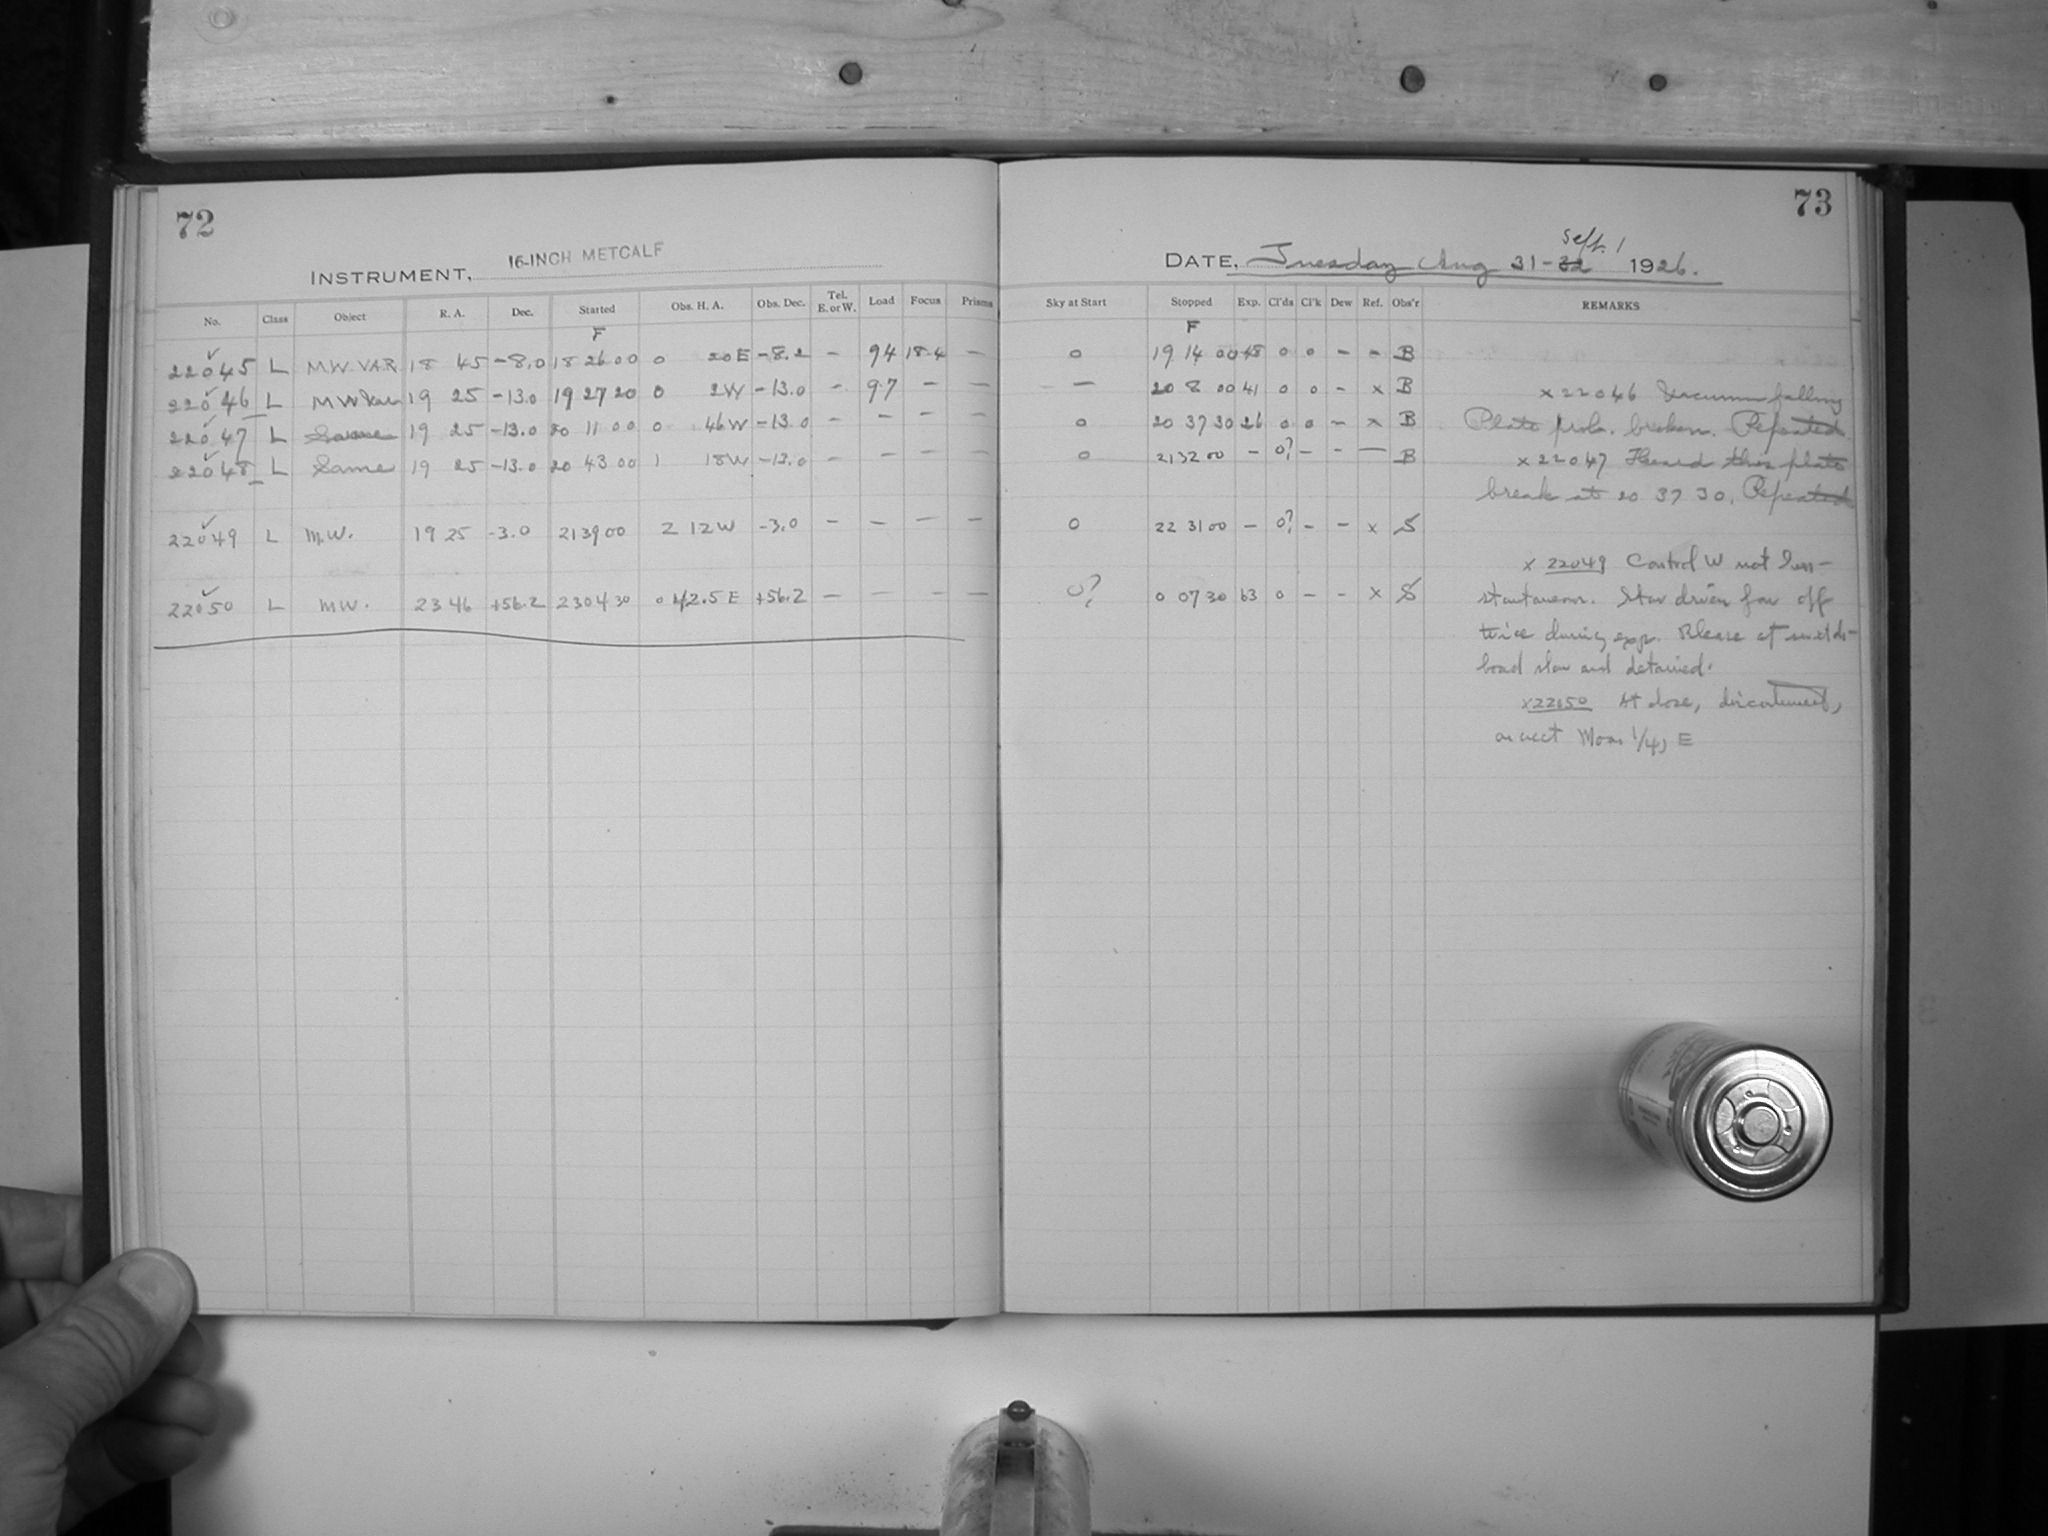 72
INSTRUMENT, 16-INCH METCALF
No. Class Object R. A. Dec. Started Obs. H. A. Obs. Dec. Tel. E. or W. Load Focus Prisms
F
22045 L M.W. VAR 18 45 -8.0 18 26 00 0 20 E -8.2 - 94 18.4 -
22046 L M W Var 19 25 -13.0 19 27 20 0 2W -13.0 - 97 - -
22047 L Same 19 25 -13.0 20 11 00 0 46 W -13.0 - - - -
22048 L Same 19 25 -13.0 20 43 00 1 18W -13.0 - - - -
22049 L M.W. 19 25 -3.0 21 39 00 2 12 W -3.0 - - - -
22050 L M.W. 23 46 +56.2 23 04 30 0 42.5 E +56.2 - - - -
73
DATE, Tuesday Aug 31-32 Sept. 1 1926.
Sky at Start Stopped Exp. Cl'ds Cl'k Dew Ref. Obs'r REMARKS
F
0 19 14 00 48 0 0 - - B
- 20 8 00 41 0 0 - x B
0 20 37 30 26 0 0 - x B
0 21 32 00 - 0? - - - B
0 22 31 00 - 0? - - x S
0? 0 07 30 63 0 - - x S
x 22046 Vacuum falling
Plate prob. broken. Repeated
x 22047 Heard this plate
break at 20 37 30. Repeated
x 22049 Control W not Ins-
tantaneous. Star driven far off
twice during exp. Release at
slow and detained.
x 22050 At close,
Moon 1/4, E